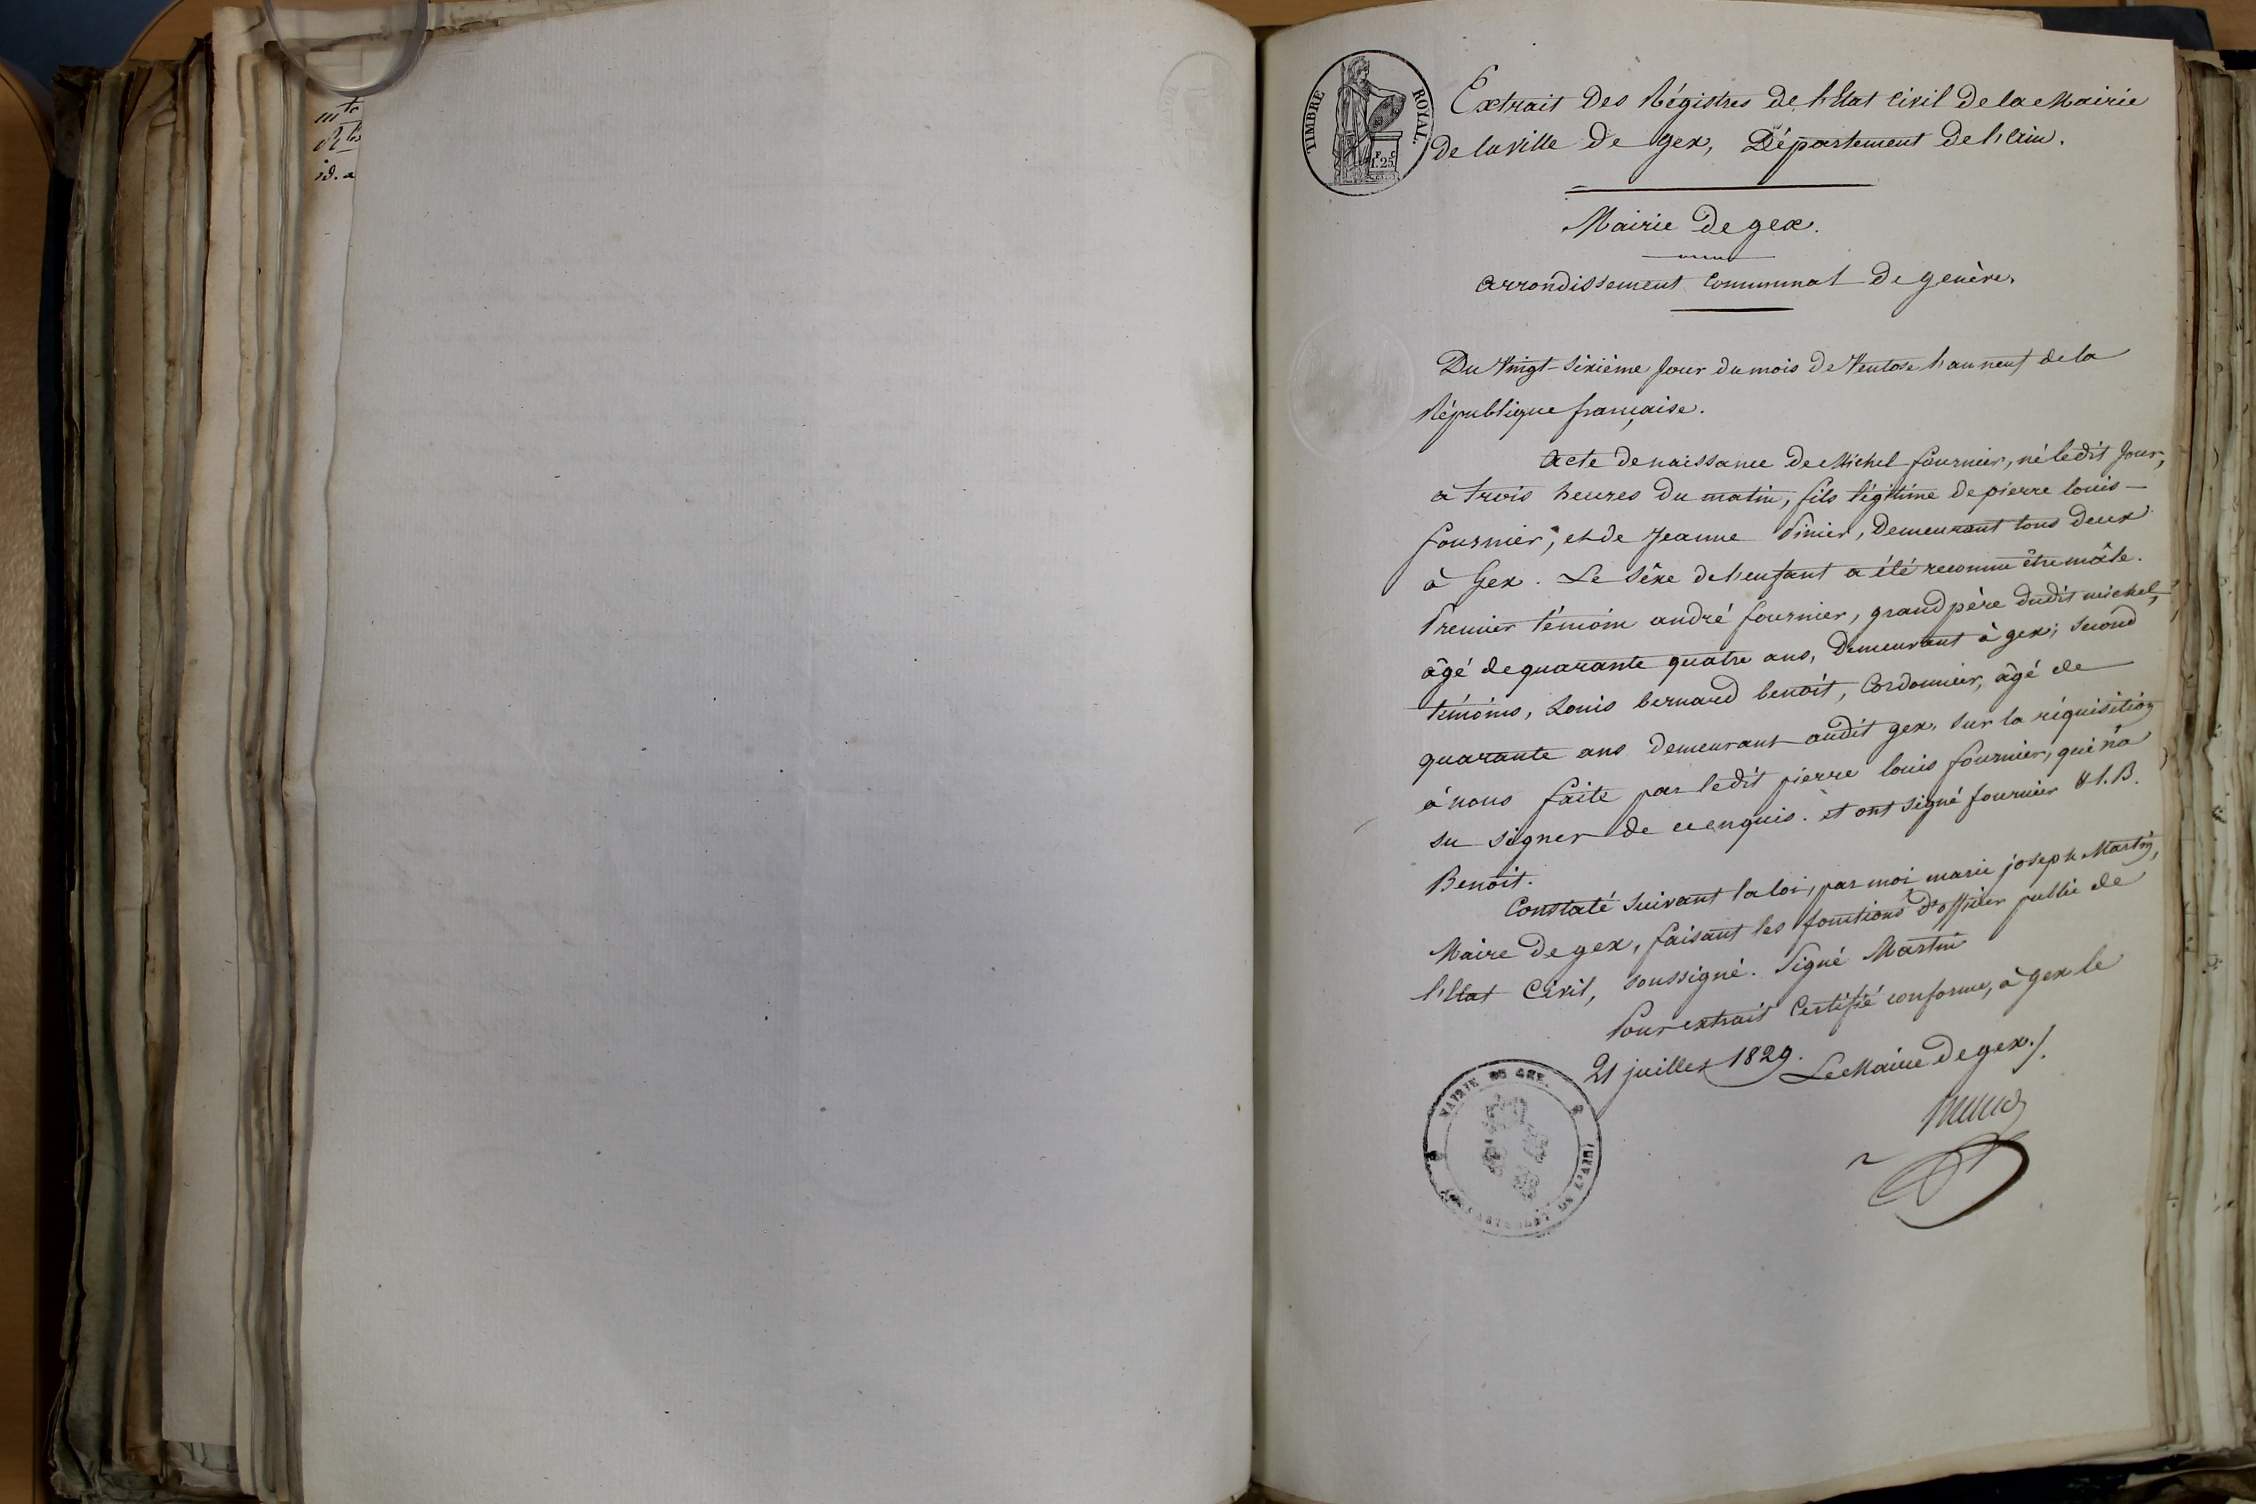 mte
id. a
TIMBRE ROYAL.
F C
1.25
Extrait Des Régistres de l'Etat Civil de la Mairie
de la ville De gex, Département de l'ain.
Mairie De gex.
arrondissement Communal De genève.
Du Vingt-sixième Jour du mois de Ventose l'an neuf de la
République française.
Acte de naissance de Michel fournier, né ledit Jour,
à trois heures du matin, fils légitime de pierre louis
fournier, et de Jeanne Pinier, Demeurant tous deux
à Gex. Le sèxe de l'enfant a été reconnu être mâle.
Premier témoin andré fournier, grand père dudit michel,
âgé de quarante quatre ans, Demeurant à gex; second
témoins, Louis bernard benoît, Cordonnier, âgé de
quarante ans demeurant audit gex, sur la réquisition
à nous faite par ledit pierre louis fournier, qui n'a
su signer de ce enquis. et ont signé fournier & l.B.
Benoît.
Constaté suivant la loi, par moi marie joseph Martin,
Maire De gex, faisant les fonctions d'officier public de
l'Etat Civil, soussigné. Signé Martin
Pour extrait Certifié conforme, à gex le
21 juillet 1829. Le Maire De gex./.
MAIRIE DE GEX.